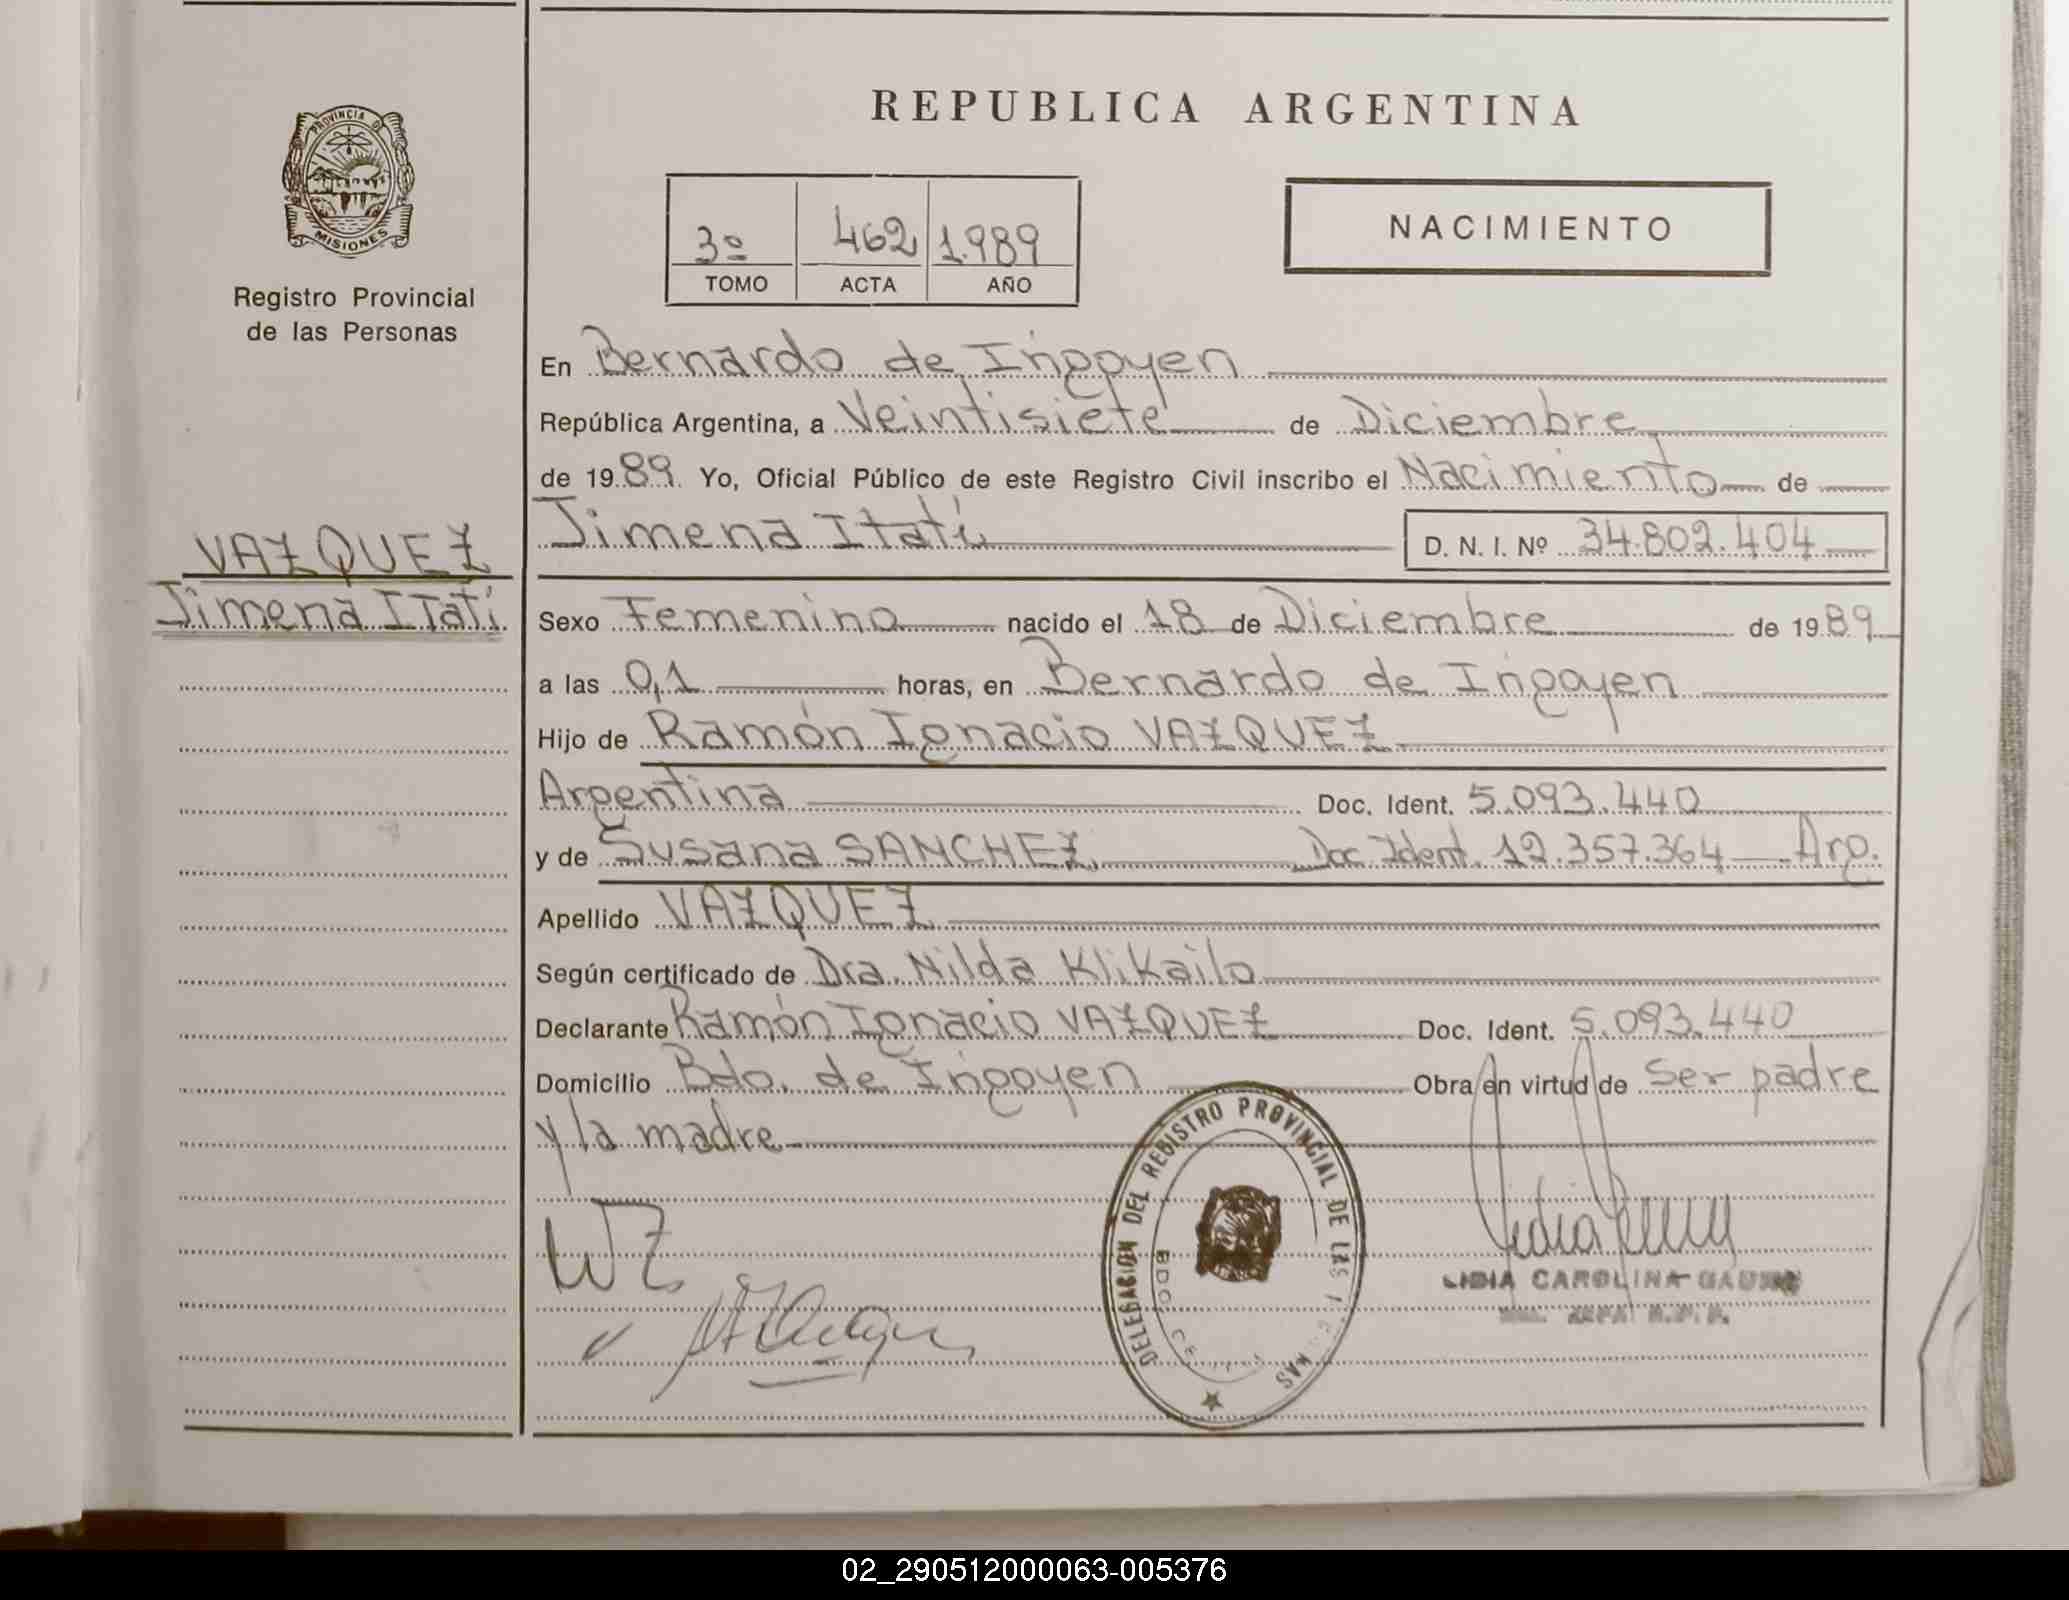 REPUBLICA ARGENTINA
PROVINCIA D
MISIONES
Registro Provincial
de las Personas
3º 462 1.989
TOMO ACTA AÑO
NACIMIENTO
En Bernardo de Irigoyen
República Argentina, a Veintisiete de Diciembre
de 1989. Yo, Oficial Público de este Registro Civil inscribo el Nacimiento de
VAZQUEZ
Jimena Itatí
Jimena Itatí D. N. I. Nº 34.802.404
Sexo Femenino nacido el 18 de Diciembre de 1989
a las 0,1 horas, en Bernardo de Irigoyen
Hijo de Ramón Ignacio VAZQUEZ
Argentina Doc. Ident. 5.093.440
y de Susana SANCHEZ Doc Ident. 12.357.364 Arg.
Apellido VAZQUEZ
Según certificado de Dra. Nilda Klikailo
Declarante Ramón Ignacio VAZQUEZ Doc. Ident. 5.093.440
Domicilio Bdo. de Irigoyen Obra en virtud de Ser padre
y la madre
DELEGACION DEL REGISTRO PROVINCIAL DE LAS
BDO
LIDIA CAROLINA
02_290512000063-005376